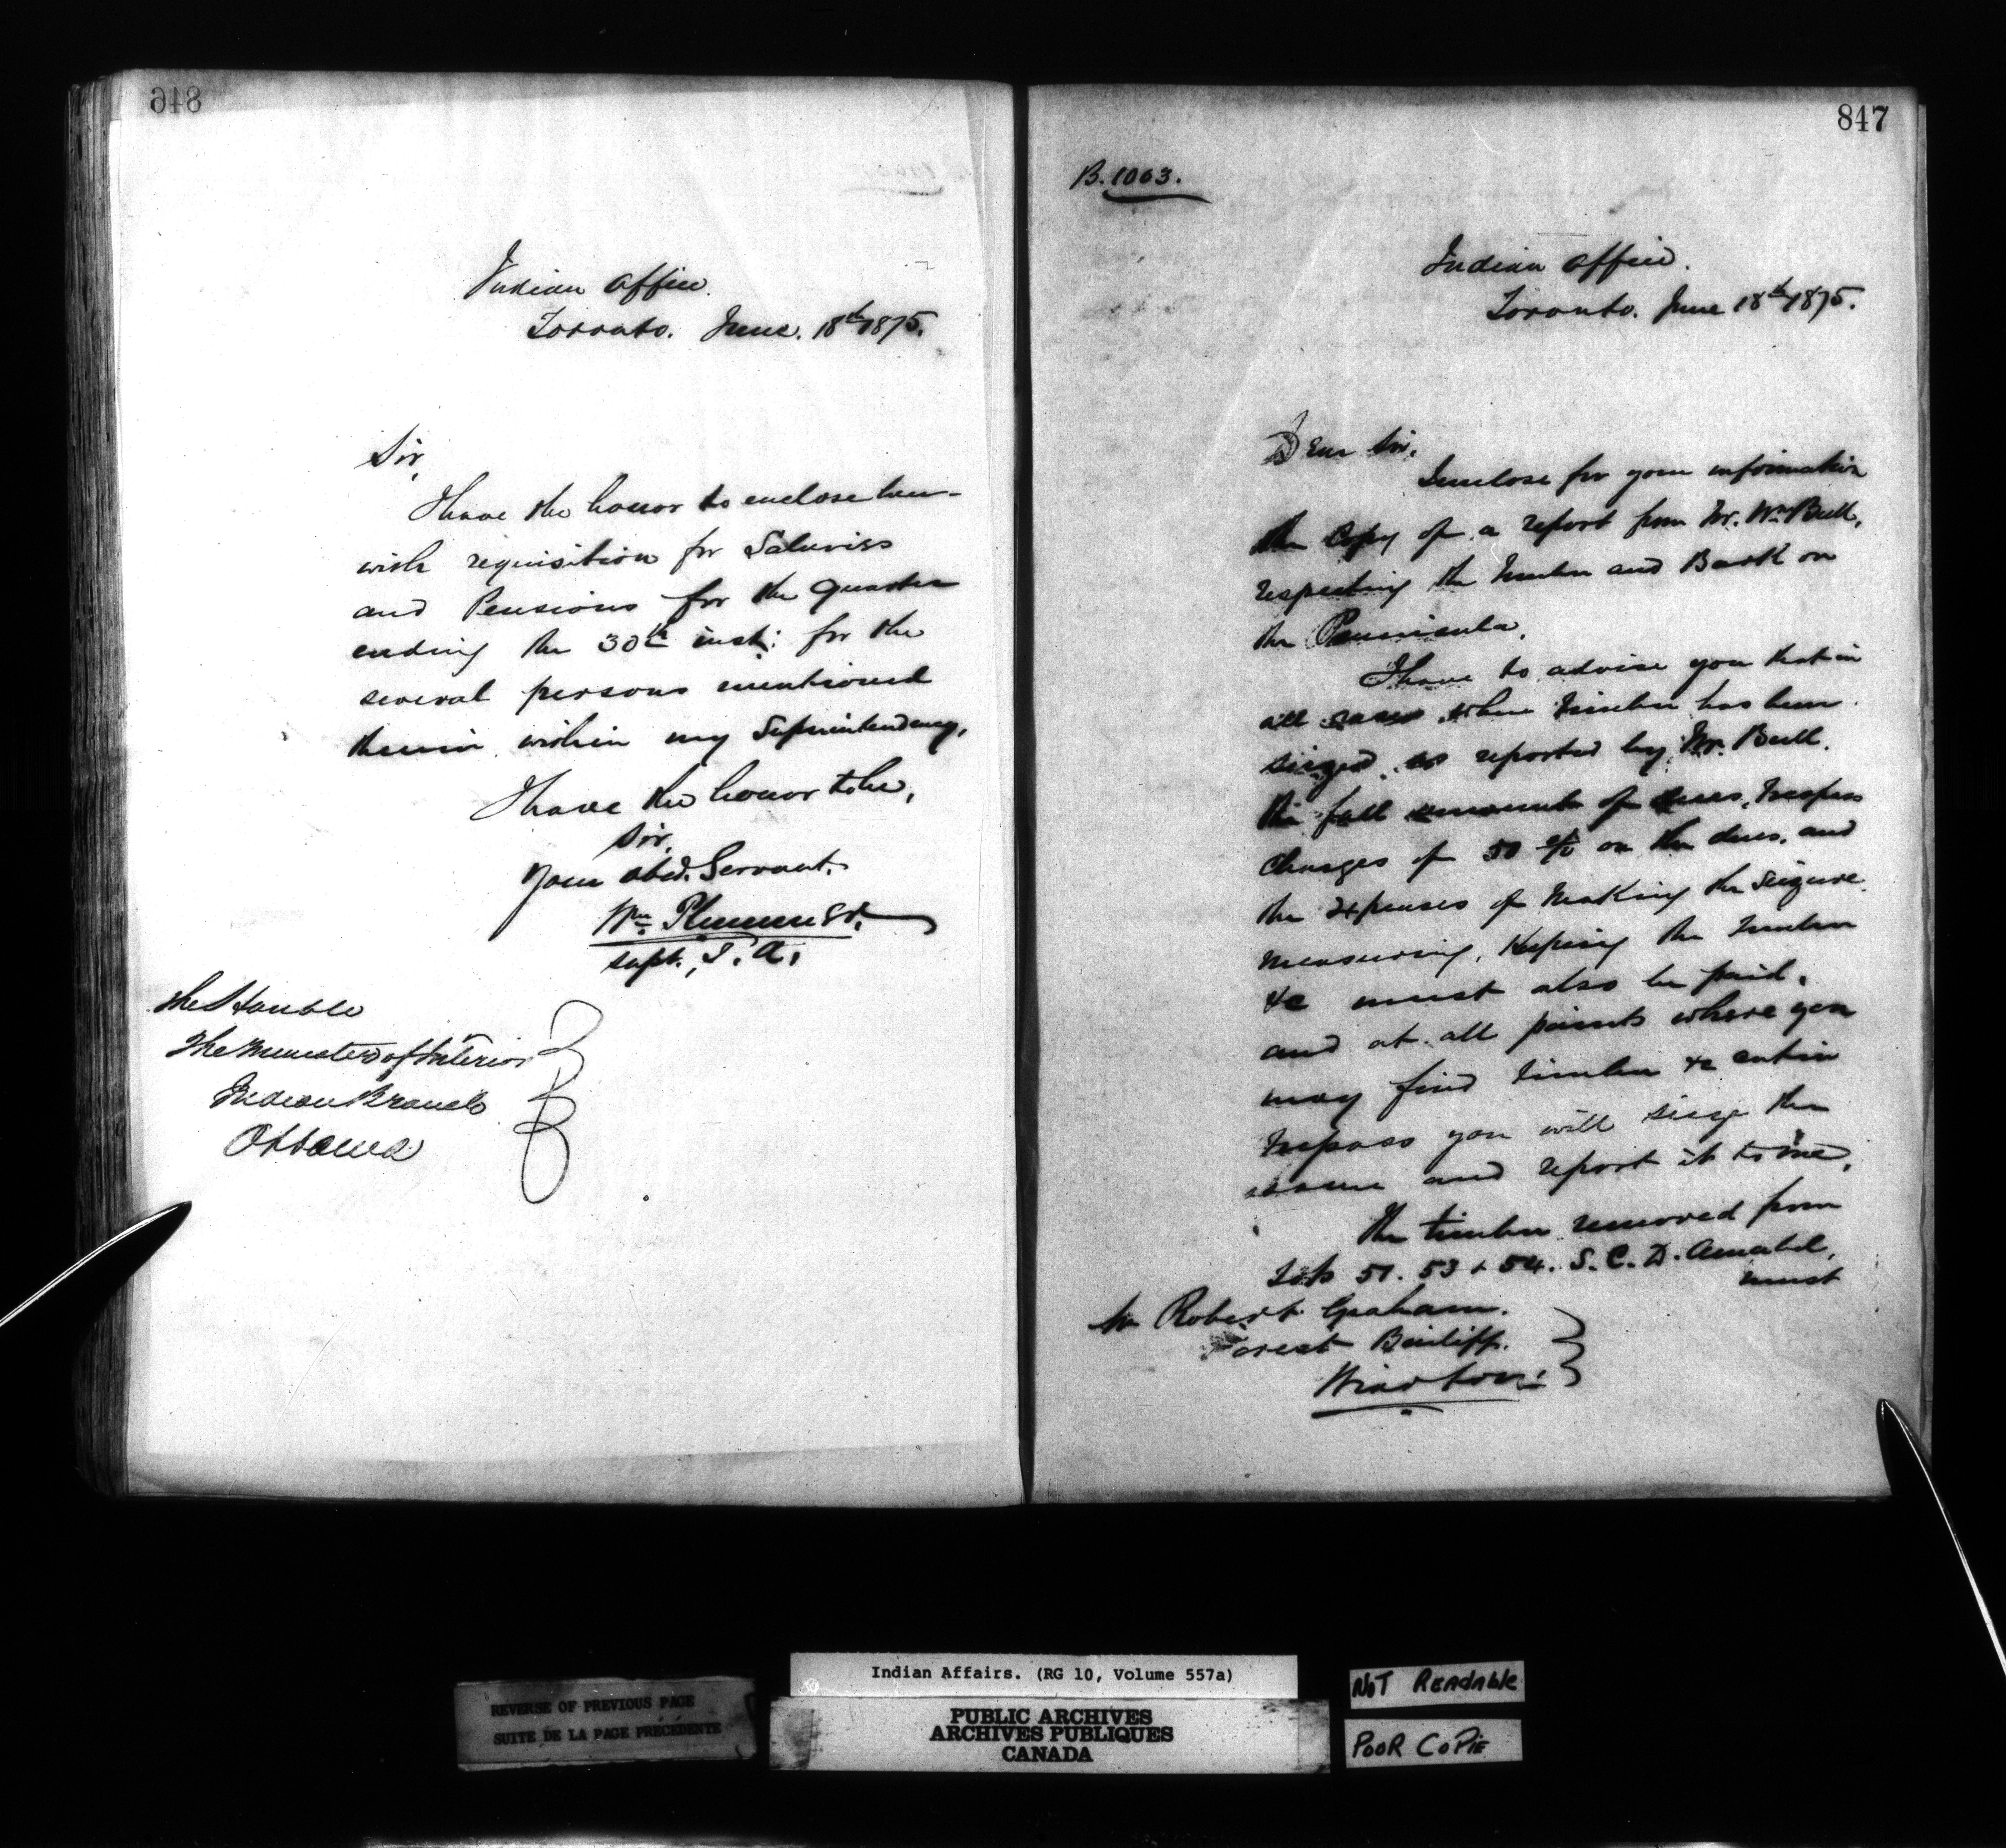 846
Indian Office.
Toronto. June. 18th 1875.
Sir,
I have the honor to enclose here-
with requisition for Salaries
and Pensions for the quarter
ending the 30th inst: for the
several persons mentioned
therein within my Superintendency,
I have the honor to be,
Sir,
Your obed. Servant.
Wm Plummer.
Supt., I. A.
The Honble
The Minister of Interior
Indian Branch
Ottawa
847
B. 1063.
Indian Office.
Toronto. June 18th 1875.
Dear Sir,
I enclose for your information
the Copy of a report from Mr. Wm Bull,
respecting the Timber and Bark on
the Peninsula.
I have to advise you that in
all cases where Timber has been
seized as reported by Mr. Bull.
the full amount of dues, trespass
charges of 50 % on the dues, and
the expenses of making the Seizure
measuring, keeping the timber
&c must also be paid.
and at all points where you
may find timber &c cut in
trespass you will seize the
same and report it to me.
The timber removed from
Lots 51. 53 & 54. S. C. D. Amabel,
must
Mr Robert Graham.
Forest Bailiff.
Wiarton.
REVERSE OF PREVIOUS PAGE
SUITE DE LA PAGE PRÉCÉDENTE
Indian Affairs. (RG 10, Volume 557a)
PUBLIC ARCHIVES
ARCHIVES PUBLIQUES
CANADA
NOT READABLE
POOR COPIE